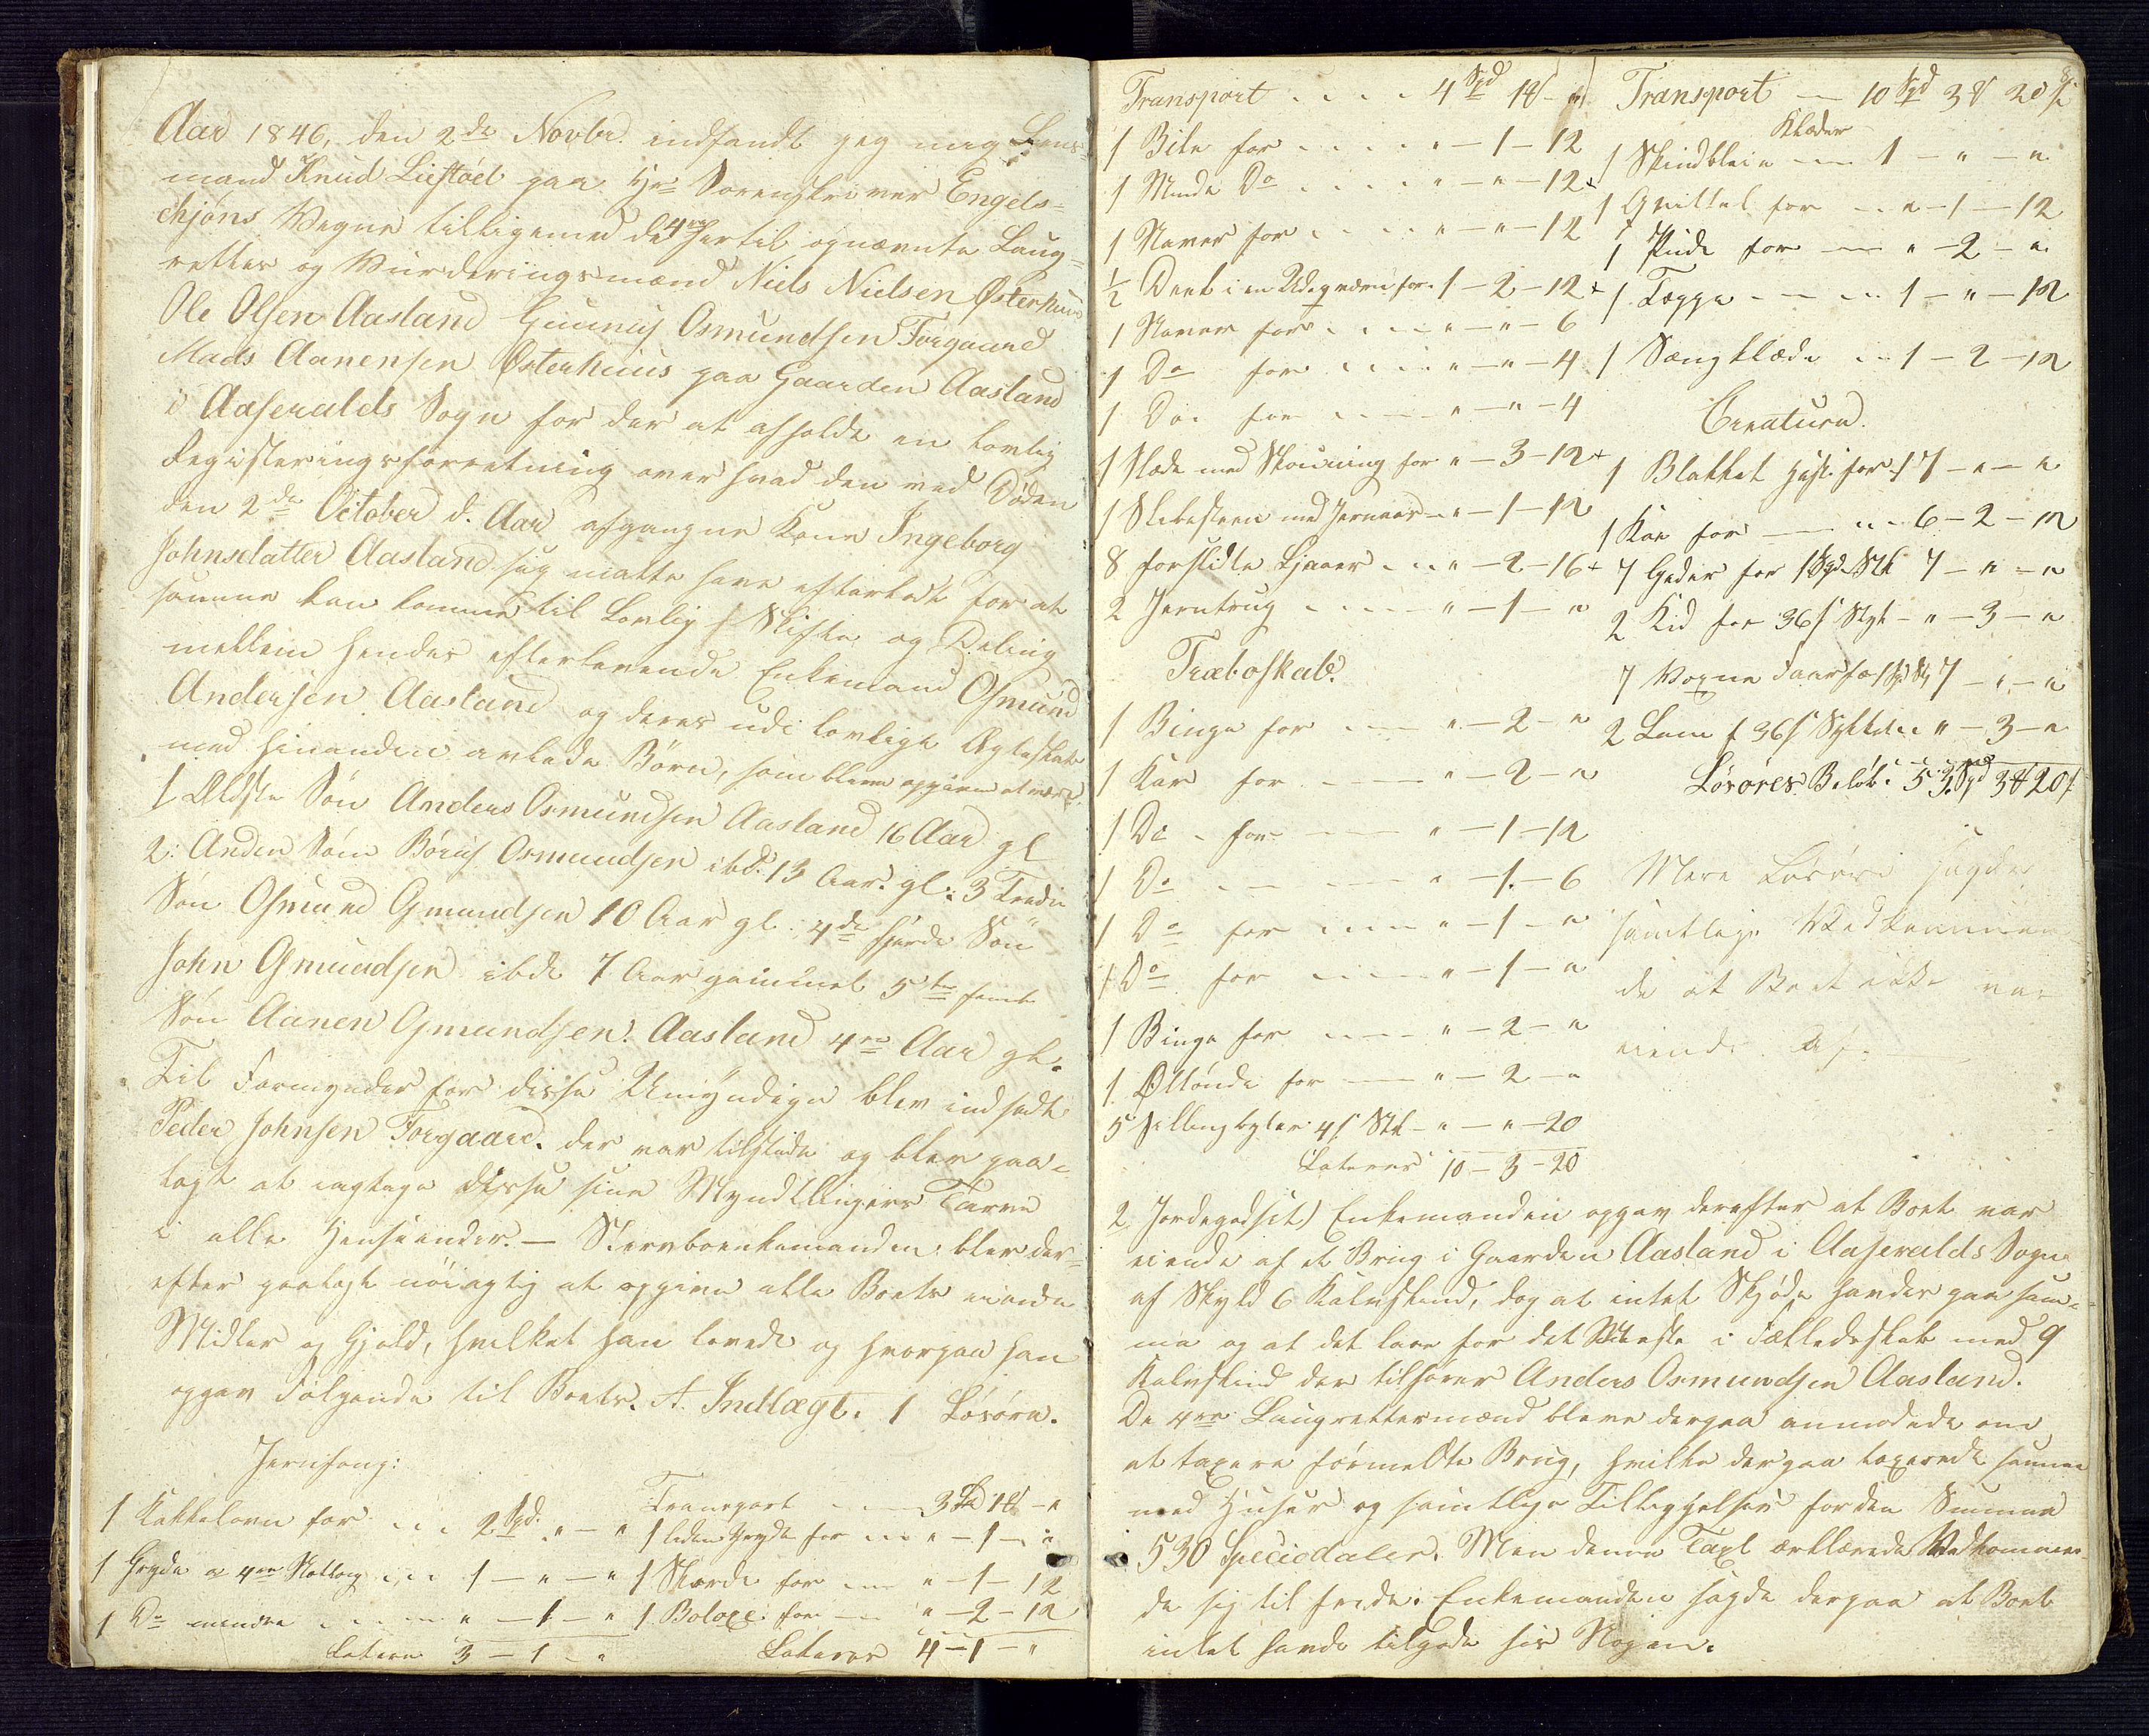 Aar 1846, den 2de Novbr. indfandt jeg mig Lens-
mand Knud Liestøel paa Hr Sorenskriver Engels-
chjøns Vegne tilligemed de 4re hertil opnævnte Laug-
rettes og Vurderingsmænd Niels Nielsen Østerhuus
Ole Olsen Aasland Gunnuf Osmundsen Forgaard
Mads Aanensen Østerhuus paa Gaarden Aasland
i Aaseralds Sogn for der at afholde en lovlig
Registeringsforretning over hvad den ved Døden
den 2de October d. Aar afgangne Kone Ingeborg
Johnsdatter Aasland sig matte have efterladt for at
samme kan komme til Lovlig Skifte og Deling
mellem hendes efterlevende Enkemand Osmund
Andersen Aasland og deres udi lovligt Ægteskab
med hinanden avlede Børn, som bleve opgivne at være
1 Ældste Søn Anders Osmundsen Aasland 16 Aar gl
2: Anden Søn Børuf Osmundsen ibd: 13 Aar: gl: 3 Tredie
Søn Osmund Osmundsen 10 Aar gl: 4de fjerde Søn
John Osmundsen ibde 7 Aar gammel 5te femte
Søn Aanen Osmundsen Aasland 4re Aar gl.
Til Formynder for disse Umyndige blev indsadt
Peder Johnsen Forgaard. der var tilstede og blev paa-
lagt at iagtage disse sine Myndtlingers Tarv
i alle Henseender. — Stervboenkemanden blev der-
efter paalagt nøiagtig at opgive alle Boets eiende
Midler og Gjeld, hvilket han lovede og hvorpaa han
opgav Følgende til Boets. A. Indtægt. 1 Løsøre.
Jernfang:
1 Kakkelovn for 2 Spd. " — "
1 Gryde a 4re 1 — " — "
1 Do mindre " — 1 — "
Latere 3 — 1 — "
Transport 3 Spd 1 — "
1 liden Gryde for " — 1 — "
1 for " — 1 — 12
1 Boloxe for " — 2 — 12
Lateres 4 — 1 — "
Transport 4 Spd 1 — "
1 Bile for " — 1 — 12
1 Minde Do " — " — 12
1 Naver for " — " — 12
1/2 Deel i en for 1 — 2 — 12
1 Naver for " — " — 6
1 Do for " — " — 4
1 Do for " — " — 4
1 Slæde med Skouning for " — 3 — 12
1 Slibesteen med " — 1 — 12
8 forslidte Ljaaer " — 2 — 16
2 Jerntrug " — 1 — "
Træboskab.
1 Binge for " — 2 — "
1 Kar for " — 2 — "
1 Do for " — 1 — 12
1 Do " — 1 — 6
1 Do for " — 1 — "
1 Do for " — 1 — "
1 Binge for " — 2 — "
1 Øltønde for " — 2 — "
5 4 s Stk " — " — 20
Lateres 10 — 3 — 20
Transport 10 Spd 3 20
Klæder
1 Skindbleie 1 — " — "
1 for " — 1 — 12
1 Pude for " — 2 — "
1 Teppe 1 — " — 12
1 Sengklæde 1 — 2 — 12
Creature.
1 Blakket for 17 — " — "
1 Koe for 6 — 2 — 12
7 Geder for 1 Spd Stk 7 — " — "
2 Kid for 36 s Styk " — 3 — "
7 Voxne Faar 7 — " — "
2 Lam f 36 s Stykket " — 3 — "
Løsøres Beløb: 53 Spd 3 20
Mere Løsøre sagde
samtlige Vedkommen-
de at Boet ikke var
eiende af.
2 Jordegodset) Enkemanden opgav derefter at Boet var
eiende af et Brug i Gaarden Aasland i Aaseralds Sogn
af Skyld 6 Kalvskind, dog at intet Skjøde havdes paa sam-
me og at det laae for det Meste i Fælledsskab med 9
Kalvskind der tilhører Anders Osmundsen Aasland.
De 4re Laugrettesmænd bleve derpaa anmodede om
at taxere formeldte Brug, hvilke derpaa taxerede samme
med Huser og samtlige Tilliggelser for den Summa
530 Speciedaler. Men denne Taxt erklærede Vedkommen-
de sig til frede. Enkemanden sagde derpaa at Boet
intet havde tilgode hos Nogen.